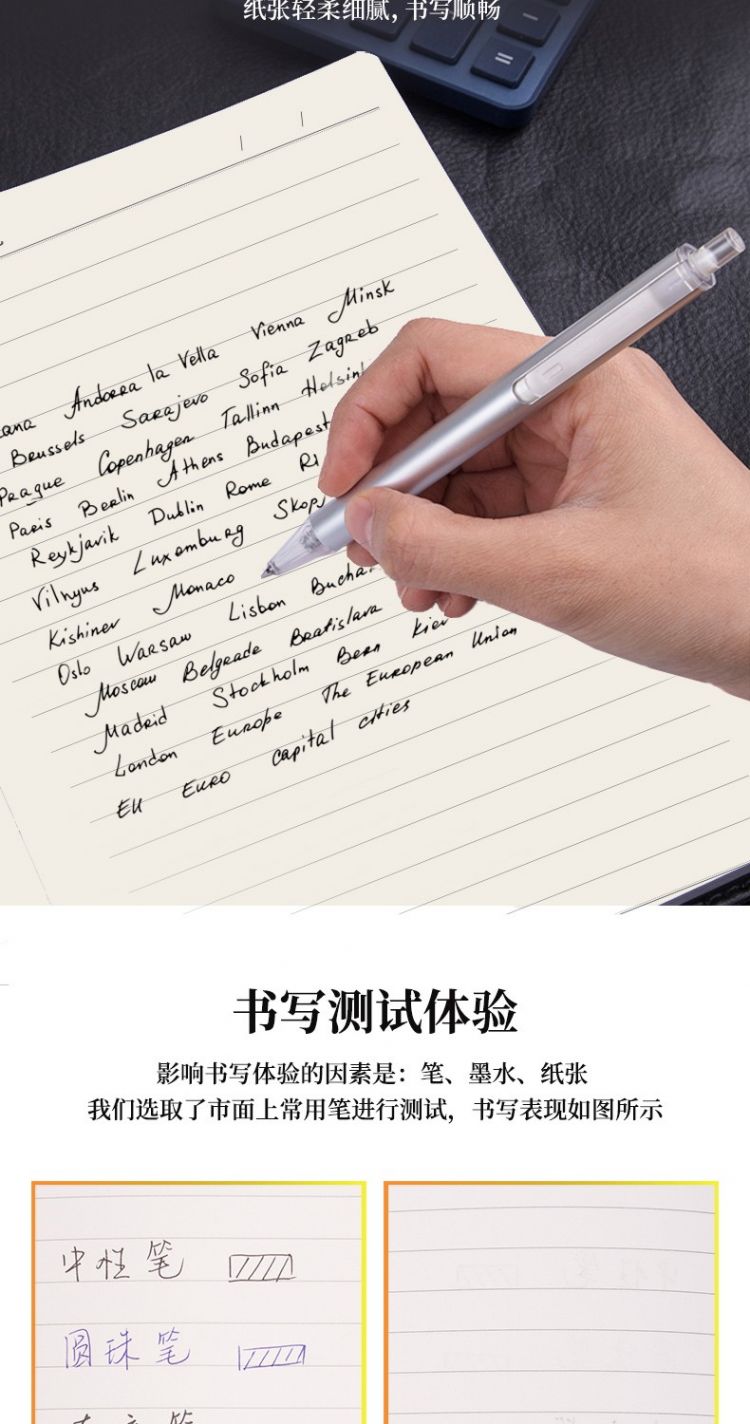 纸张轻柔细腻，书写顺畅
=
Andorra la Vella Vienna Minsk
Brussels Sarajevo Sofia Zagreb
Prague Copenhagen Tallinn Helsin
Paris Berlin Athens Budapest
Reykjavik Dublin Rome Ri
Vilnyus Luxemburg Skop
Kishinev Monaco
Oslo Warsaw Lisbon Buchar
Moscow Belgrade Bratislava
Madrid Stockholm Bern Kiev
London Europe The European Union
EU Euro capital cities
书写测试体验
影响书写体验的因素是：笔、墨水、纸张
我们选取了市面上常用笔进行测试，书写表现如图所示
中性笔
圆珠笔